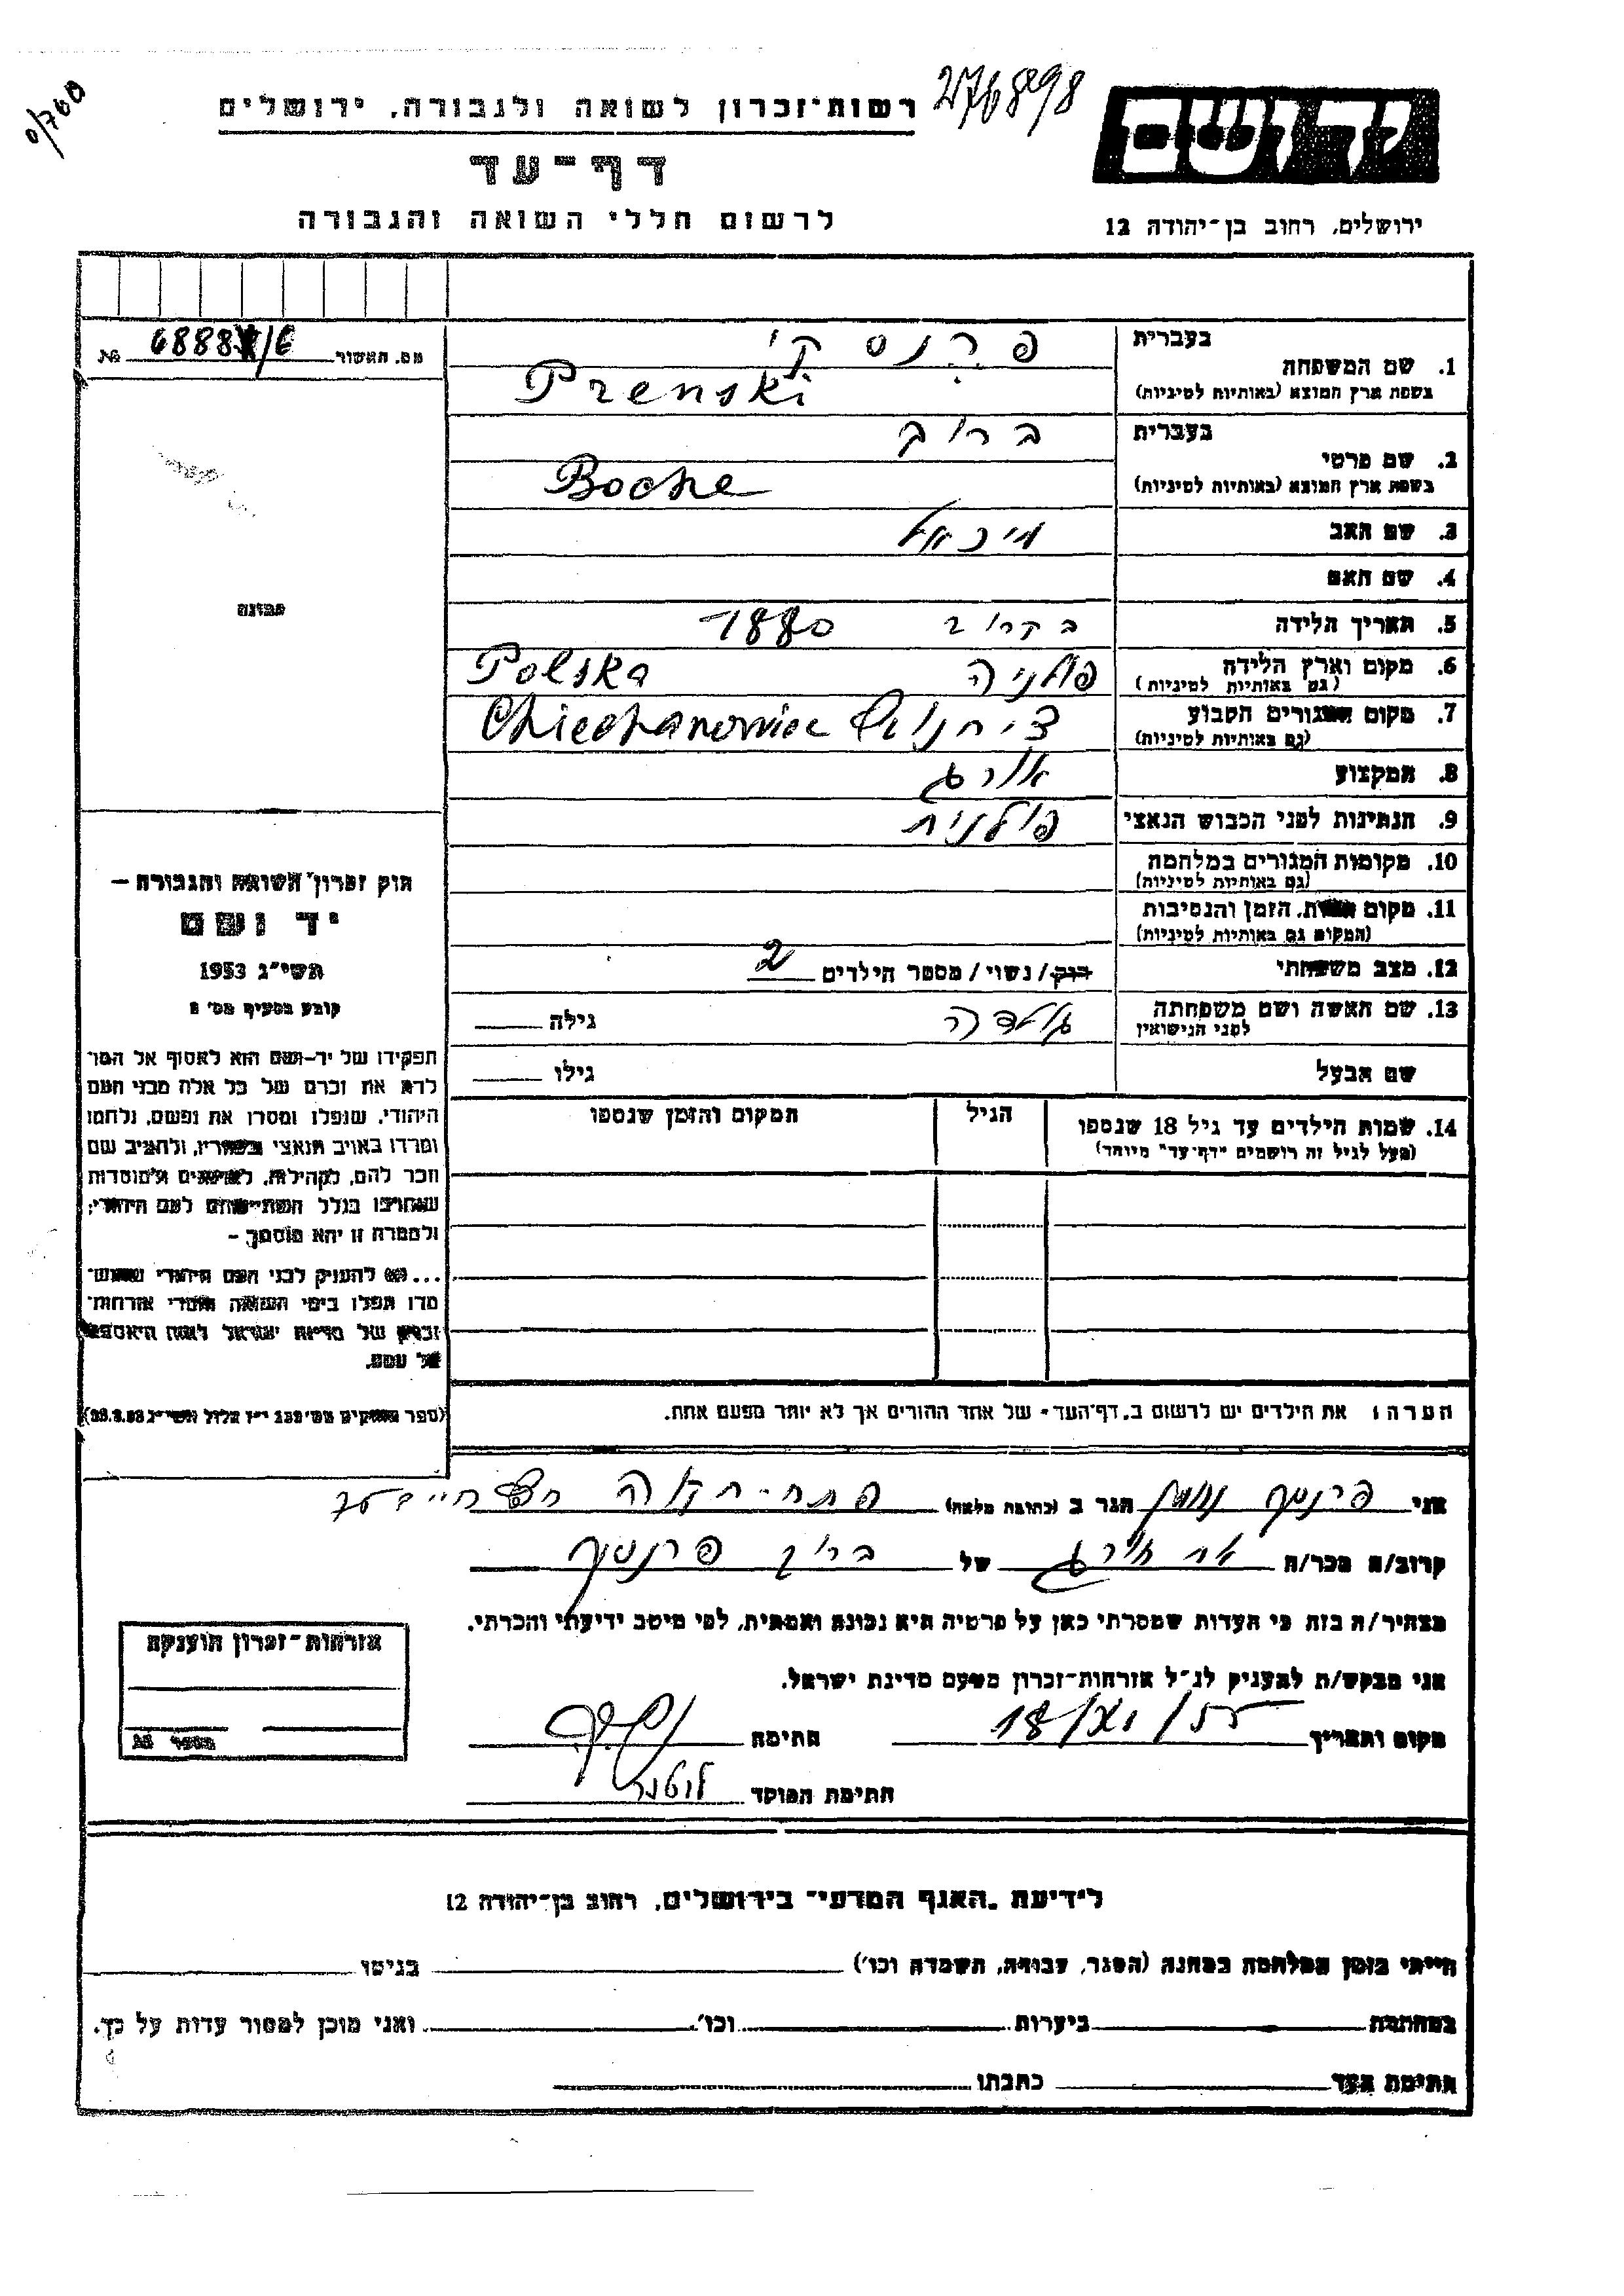 רשות-זכרון לשואה ולגבורה, ירושלים
276898
0/760
דף-עד
לרשום חללי השואה והגבורה
ידושם
ירושלים, רחוב בן-יהודה 12
בעברית פרנסקי
1. שם המשפחה
בשפת ארץ המוצא (באותיות לטיניות) Prenski
בעברית ברוך
2. שם פרטי
בשפת ארץ המוצא (באותיות לטיניות) Boche
3. שם האב מיכאל
4. שם האם
5. תאריך הלידה בקרוב 1880
6. מקום וארץ הלידה פולניה Polska
(גם באותיות לטיניות)
7. מקום המגורים הקבוע Chiechanowiec
(גם באותיות לטיניות)
8. המקצוע אורג
9. הנתינות לפני הכבוש הנאצי פולנית
10. מקומות המגורים במלחמה
(גם באותיות לטיניות)
11. מקום המות, הזמן והנסיבות
(המקום גם באותיות לטיניות)
12. מצב משפחתי רוק/ נשוי/ מספר הילדים 2
13. שם האשה ושם משפחתה גולדה גילה
לפני הנישואין
שם הבעל גילו
14. שמות הילדים עד גיל 18 שנספו הגיל המקום והזמן שנספו
(מעל לגיל זה רושמים "דף-עד" מיוחד)
הערה: את הילדים יש לרשום ב"דף-העד" של אחד ההורים אך לא יותר מפעם אחת.
מס. תאשור №
תמונה
חוק זכרון השואה והגבורה –
יד ושם
תשי"ג 1953
קובע בסעיף מס' 2
תפקידו של יד-ושם הוא לאסוף אל המו־
לדת את זכרם של כל אלה מבני העם
היהודי, שנפלו ומסרו את נפשם, נלחמו
ומרדו באויב הנאצי ובעוזריו, ולהציב שם
וזכר להם, לקהילות, לארגונים ולמוסדות
שנחרבו בגלל השתייכותם לעם היהודי;
ולמטרה זו יהא מוסמך –
... (4) להעניק לבני העם היהודי שהוש־
מדו ונפלו בימי השואה והמרי אזרחות־
זכרון של מדינת ישראל לאות היאספם
אל עמם.
אני פרינסקי הגר ב (כתובת מלאה) פתח-תקוה
קרוב/ה מכר/ה של ברוך פרנסקי
מצהיר/ה בזה כי העדות שמסרתי כאן על פרטיה היא נכונה ואמתית, לפי מיטב ידיעתי והכרתי.
אני מבקש/ת להעניק לנ"ל אזרחות-זכרון מטעם מדינת ישראל.
מקום ותאריך חתימה
חתימת הפוקד
אזרחות-זכרון הוענקה
מספר №
לידיעת "האגף המדעי" בירושלים, רחוב בן-יהודה 12
הייתי בזמן המלחמה במחנה (הסגר, עבודה, השמדה וכו') בגיטו
במחתרת ביערות וכו'. ואני מוכן למסור עדות על כך.
חתימת העד כתבתו